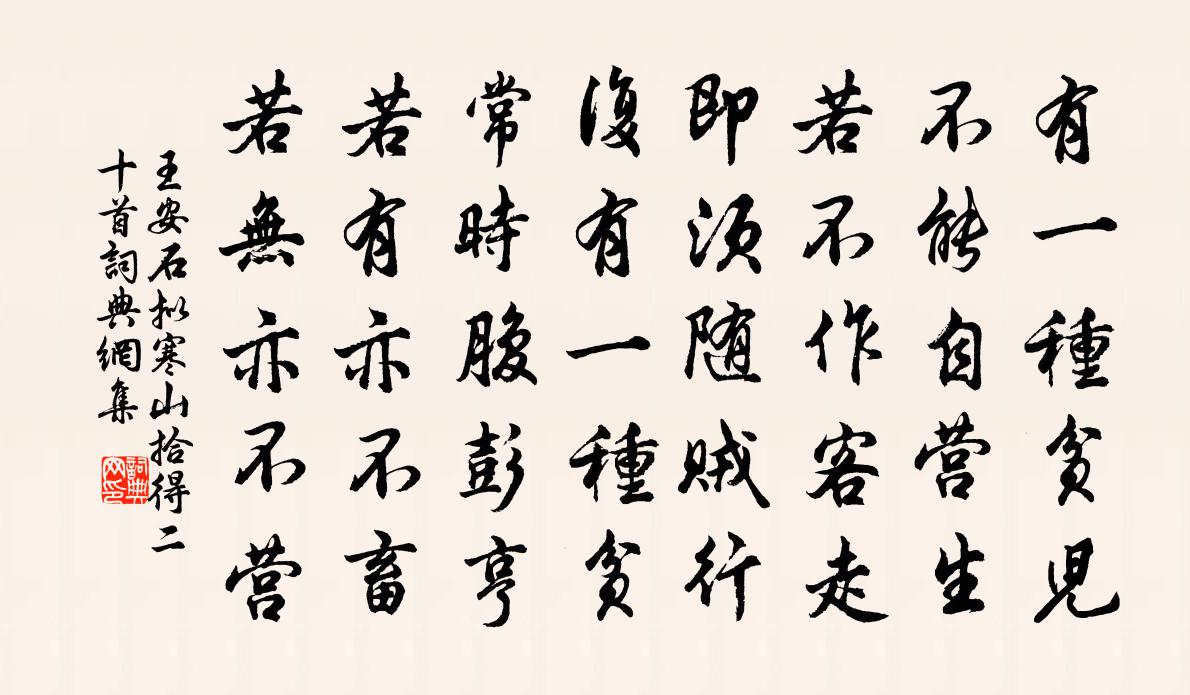 有一種貧児
不能自营生
若不作客走
即須随贼行
復有一種貧
常時腹彭亨
若有亦不畜
若無亦不营
王安石拟寒山拾得二
十首詞典網集
詞典
网印